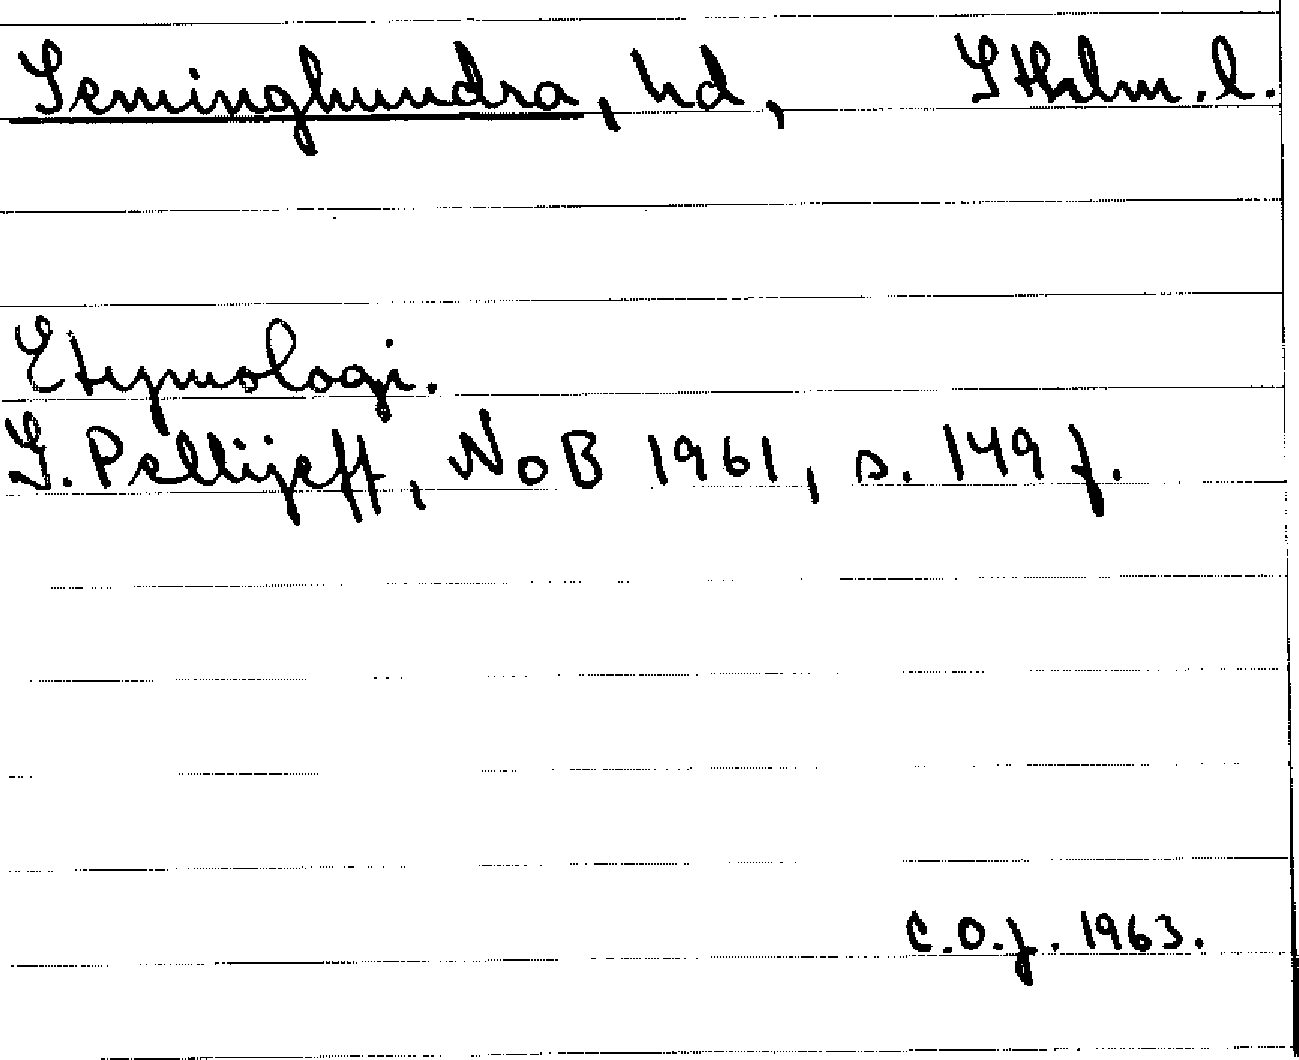 Seminghundra, hd, Sthlm. l.
Etymologi.
G. Pellijeff, NoB 1961, s. 149 f.
C.O.f. 1963.